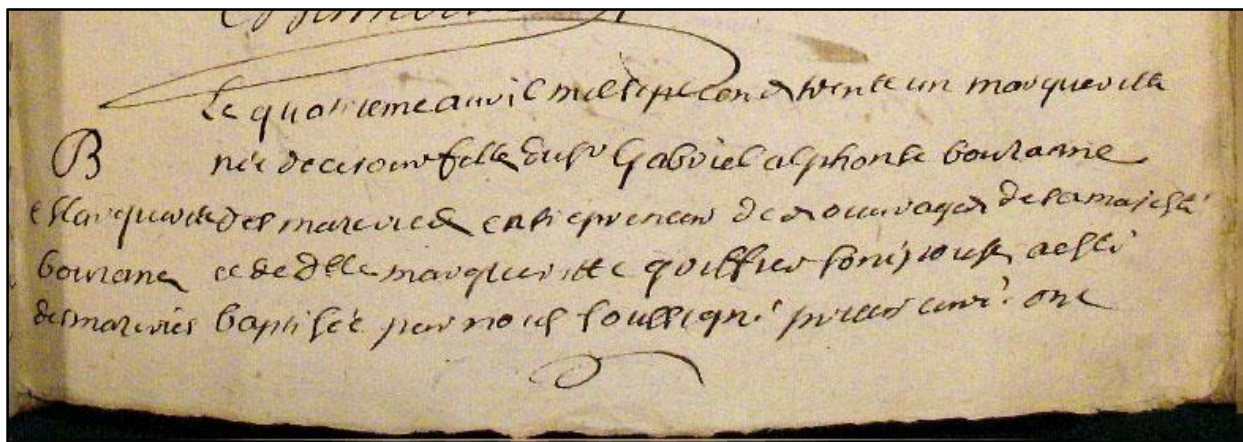 Le quatrieme avril mil sept cen & trente un margueritte
B née de ce jour fille du sr Gabriel alphonse bouranne
Marguerite des marevies entrepreneur de & ouvrages de sa majesté
bouranne et de Dlle marguerite son epouse a esté
des marevies baptisée par nous soussigné curé ont